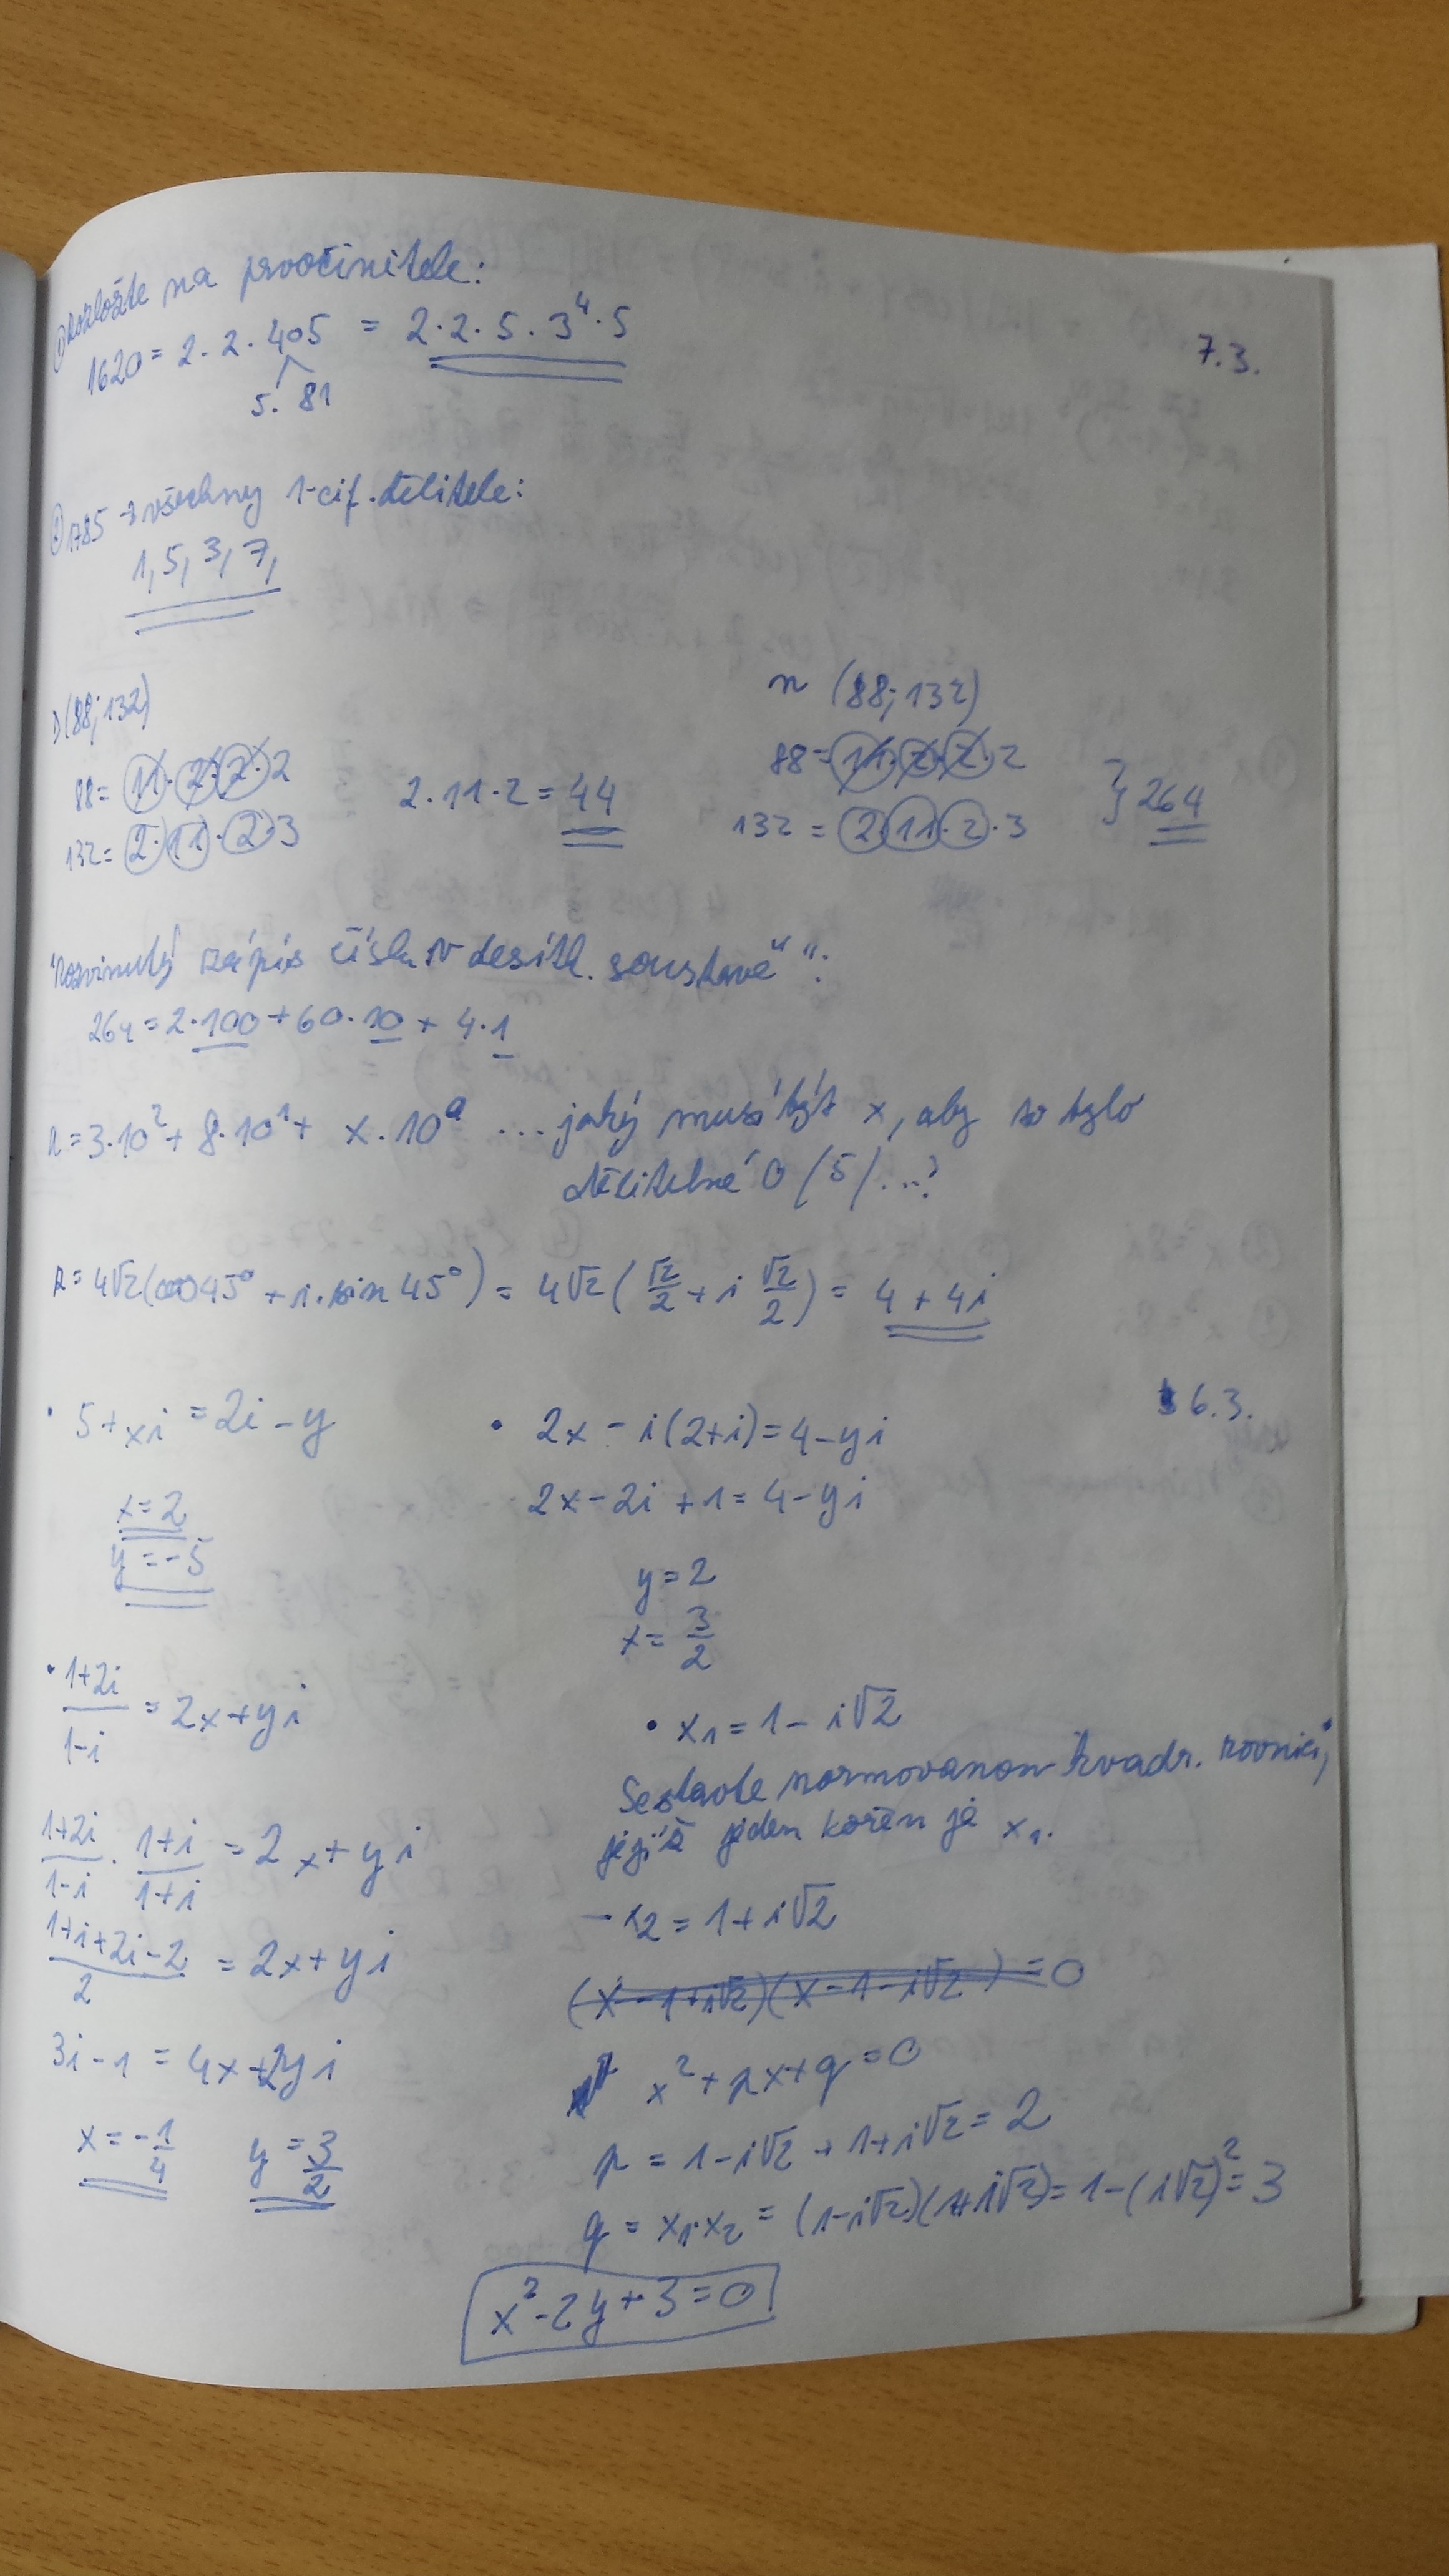 ① Rozložte na prvočinitele:
1620 = 2 . 2 . 405 = 2 . 2 . 5 . 3⁴ . 5
5 . 81
7.3.
② 1785 → všechny 1-cif. dělitele:
1, 5, 3, 7,
D(88; 132)
88 = 11 . 2 . 2 . 2
132 = 2 . 11 . 2 . 3
2 . 11 . 2 = 44
n (88; 132)
88 = 11 . 2 . 2 . 2
132 = 2 . 11 . 2 . 3
} 264
"Rozvinutý zápis čísla v desítk. soustavě":
264 = 2 . 100 + 60 . 10 + 4 . 1
= 3 . 10² + 8 . 10¹ + x . 10⁰ ... jaký musí být x, aby to bylo
dělitelné 0 /5/ ...?
= 4√2 (cos 45° + i . sin 45°) = 4√2 ( √2/2 + i √2/2 ) = 4 + 4i
6.3.
• 5 + xi = 2i - y
x = 2
y = -5
• 2x - i(2+i) = 4 - yi
2x - 2i + 1 = 4 - yi
y = 2
x = 3/2
• (1+2i)/(1-i) = 2x + yi
(1+2i)/(1-i) . (1+i)/(1+i) = 2x + yi
(1+i+2i-2)/2 = 2x + yi
3i - 1 = 4x + 2yi
x = -1/4 y = 3/2
• x₁ = 1 - i√2
Sestavte normovanou kvadr. rovnici,
jejíž jeden kořen je x₁.
- x₂ = 1 + i√2
(x - 1 + i√2)(x - 1 - i√2) = 0
x² + px + q = 0
p = 1 - i√2 + 1 + i√2 = 2
q = x₁.x₂ = (1-i√2)(1+i√2) = 1 - (i√2)² = 3
x² - 2y + 3 = 0